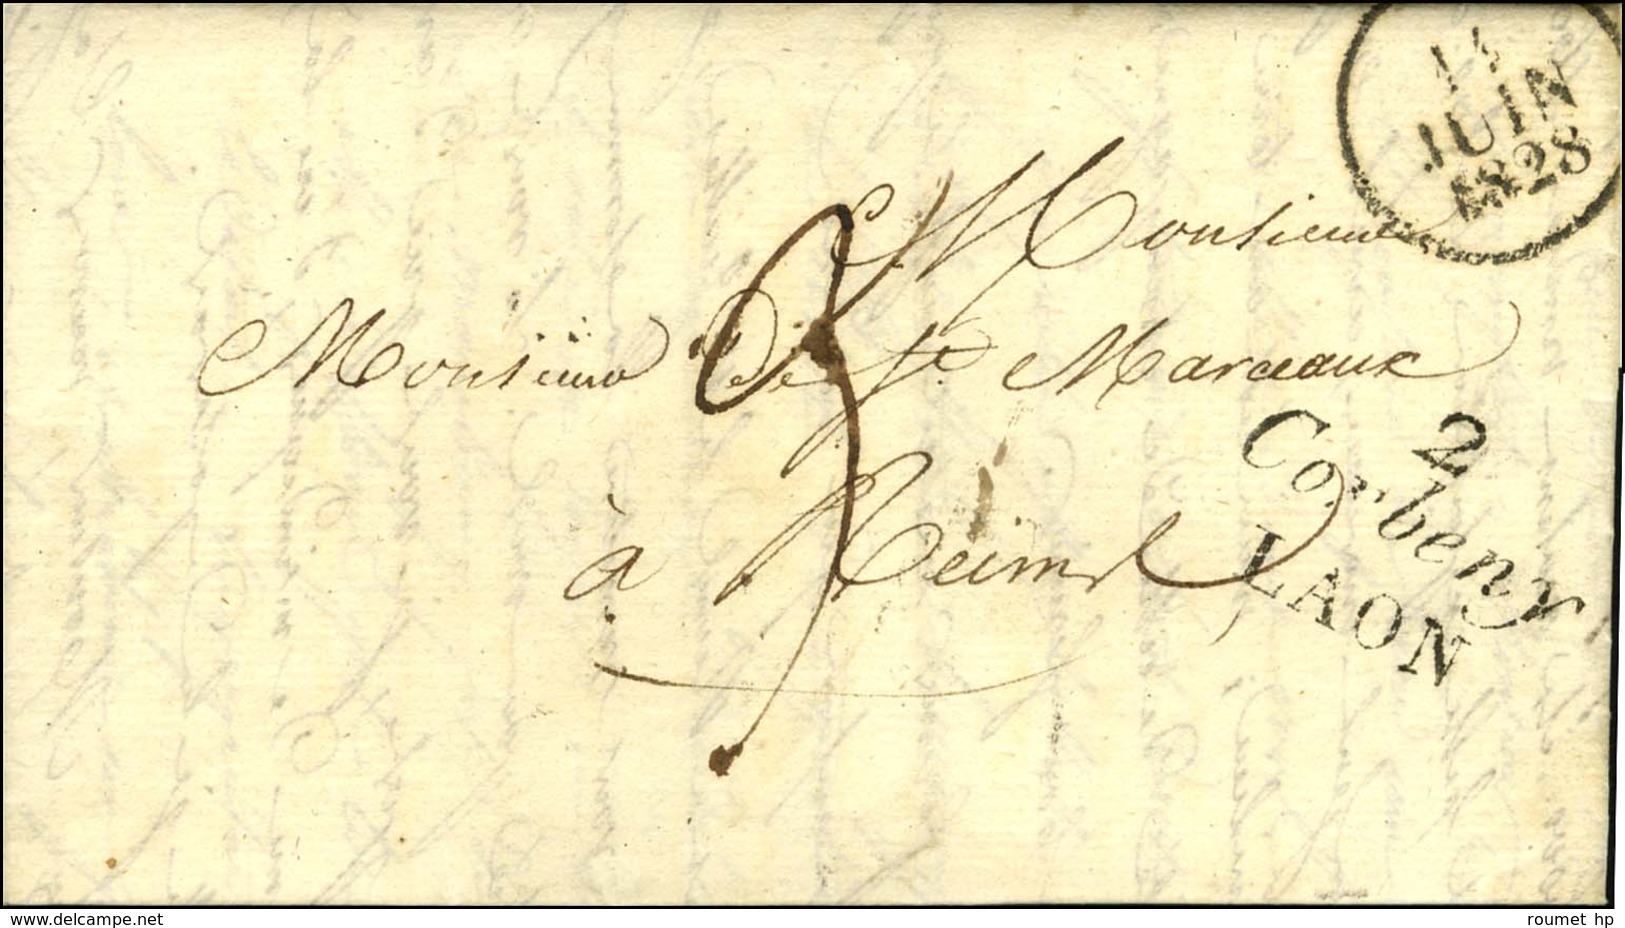 14
JUIN
1828
Monsieur
Monsieur De St. Marceaux
à Reims
3
2
Corbeny
LAON
www.delcampe.net
roumet hp